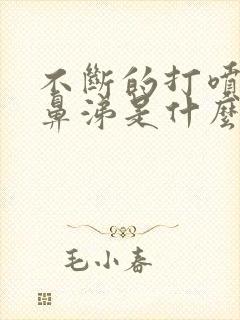 不斷的打噴
鼻涕是什麼
毛小春